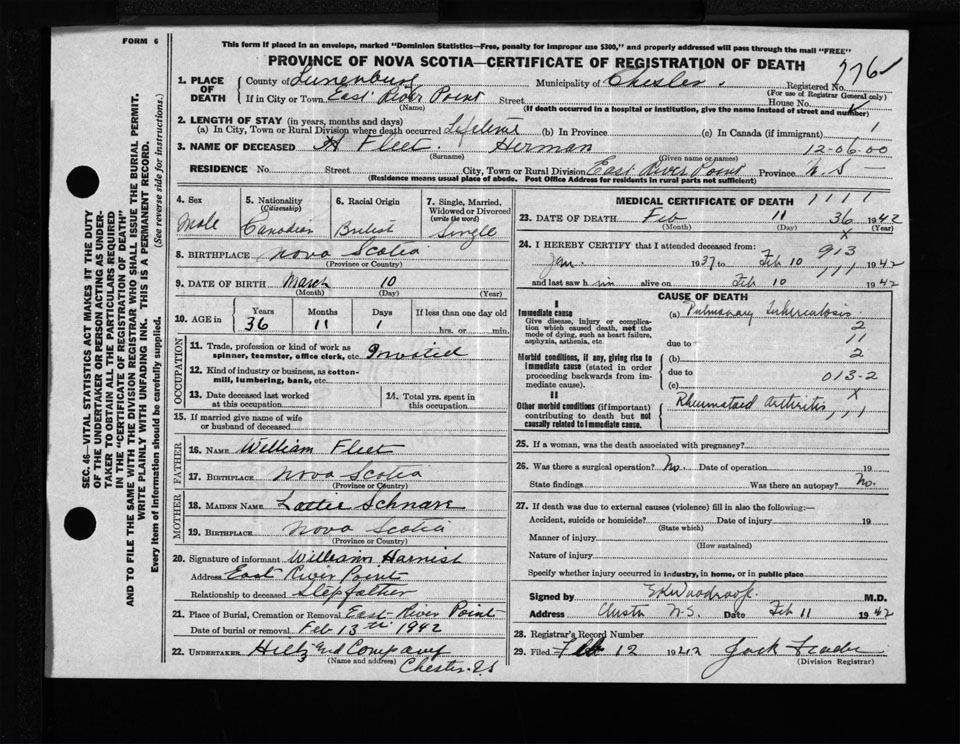 FORM 6
This form if placed in an envelope, marked "Dominion Statistics—Free, penalty for improper use $300," and properly addressed will pass through the mail "FREE"
PROVINCE OF NOVA SCOTIA—CERTIFICATE OF REGISTRATION OF DEATH
276
SEC. 46—VITAL STATISTICS ACT MAKES IT THE DUTY
OF THE UNDERTAKER OR PERSON ACTING AS UNDER-
TAKER TO OBTAIN ALL THE PARTICULARS REQUIRED
IN THE "CERTIFICATE OF REGISTRATION OF DEATH"
AND TO FILE THE SAME WITH THE DIVISION REGISTRAR WHO SHALL ISSUE THE BURIAL PERMIT.
WRITE PLAINLY WITH UNFADING INK. THIS IS A PERMANENT RECORD.
Every item of information should be carefully supplied. (See reverse side for instructions.)
1. PLACE OF DEATH County of Lunenburg Municipality of Chester Registered No.
(For use of Registrar General only)
If in City or Town East River Point Street House No.
(Name) (If death occurred in a hospital or institution, give the name instead of street and number)
2. LENGTH OF STAY (in years, months and days)
(a) In City, Town or Rural Division where death occurred Lifetime (b) In Province (c) In Canada (if immigrant) 1
3. NAME OF DECEASED Fleet Herman 12-06-00
(Surname) (Given name or names)
RESIDENCE No. Street City, Town or Rural Division East River Point Province N.S
(Residence means usual place of abode. Post Office Address for residents in rural parts not sufficient)
4. Sex Male
5. Nationality (Citizenship) Canadian
6. Racial Origin British
7. Single, Married, Widowed or Divorced (write the word) Single
8. BIRTHPLACE Nova Scotia
(Province or Country)
9. DATE OF BIRTH March 10
(Month) (Day) (Year)
10. AGE in Years Months Days If less than one day old
36 11 1 hrs. or min.
OCCUPATION
11. Trade, profession or kind of work as spinner, teamster, office clerk, etc. Invalid
12. Kind of industry or business, as cotton-mill, lumbering, bank, etc.
13. Date deceased last worked at this occupation
14. Total yrs. spent in this occupation
15. If married give name of wife or husband of deceased
FATHER
16. NAME William Fleet
17. BIRTHPLACE Nova Scotia
(Province or Country)
MOTHER
18. MAIDEN NAME Lottie Schnare
19. BIRTHPLACE Nova Scotia
(Province or Country)
20. Signature of informant William Harnish
Address East River Point
Relationship to deceased Stepfather
21. Place of Burial, Cremation or Removal East River Point
Date of burial or removal Feb 13th 1942
22. UNDERTAKER Hiltz and Company
(Name and address) Chester
MEDICAL CERTIFICATE OF DEATH 1 1 1 1
23. DATE OF DEATH Feb 11 36 1942
(Month) (Day) (Year)
24. I HEREBY CERTIFY that I attended deceased from: 913
Jan. 1937 to Feb 10 1942
and last saw him alive on Feb 10 1942
CAUSE OF DEATH
I
Immediate cause
Give disease, injury or complication which caused death, not the mode of dying, such as heart failure, asphyxia, asthenia, etc.
(a) Pulmonary Tuberculosis
2
due to 11
Morbid conditions, if any, giving rise to immediate cause (stated in order proceeding backwards from immediate cause).
(b) 2
due to 013-2
(c) X
II
Other morbid conditions (if important) contributing to death but not causally related to immediate cause.
Rheumatoid Arthritis
25. If a woman, was the death associated with pregnancy?
26. Was there a surgical operation? No. Date of operation 19
State findings Was there an autopsy? No.
27. If death was due to external causes (violence) fill in also the following:—
Accident, suicide or homicide? Date of injury 19
(State which)
Manner of injury
(How sustained)
Nature of injury
Specify whether injury occurred in industry, in home, or in public place
Signed by M.D.
Address Chester N.S. Date Feb 11 1942
28. Registrar's Record Number
29. Filed Feb 12 1942 Jack
(Division Registrar)